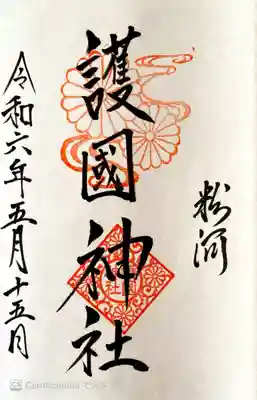 粉河
護國神社
令和六年五月十五日